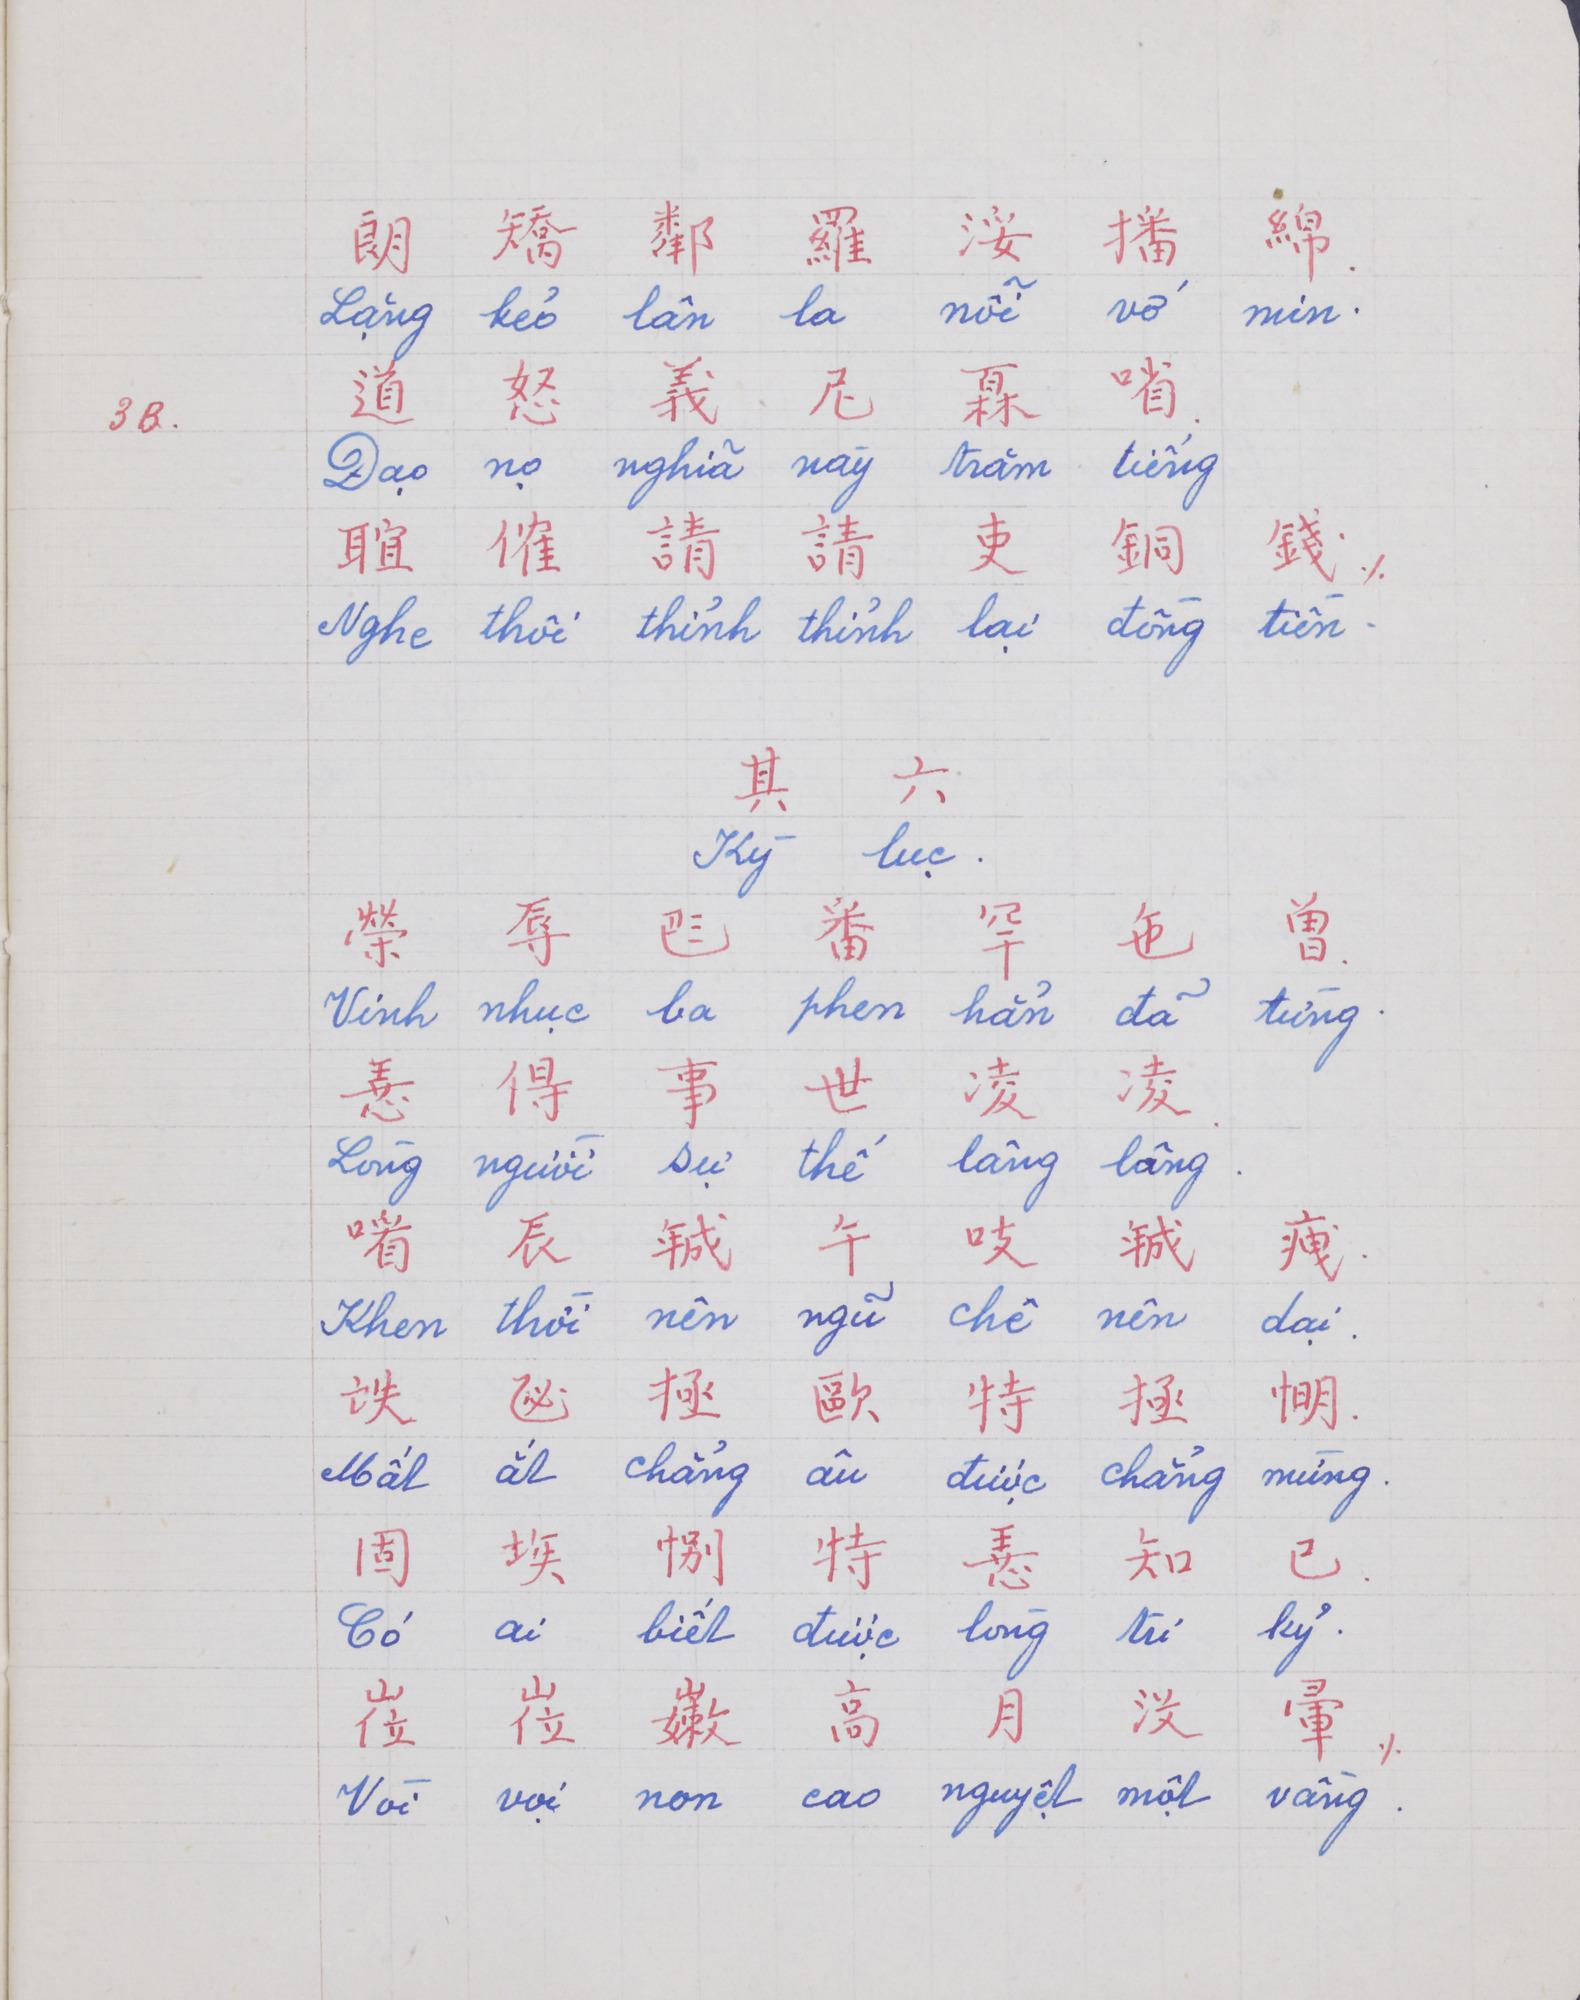 朗 矯 鄰 羅 浽 播 綿.
Lặng kẻo lân la nỗi vớ min.
3B. 道 怒 義 尼 𤾓 㗂.
Đạo nọ nghĩa này trăm tiếng
𦖑 催 請 請 吏 銅 錢 ٪
Nghe thôi thỉnh thỉnh lại đồng tiền.
其 六
Kỳ lục.
榮 辱 𠀧 番 罕 㐌 曾.
Vinh nhục ba phen hẳn đã từng.
𢚸 㝵 事 世 凌 凌.
Lòng người sự thế lâng lâng.
𠸦 辰 𢧚 午 吱 𢧚 𤵺.
Khen thời nên ngũ chê nên dại.
𠅒 乙 拯 歐 特 拯 𢜏.
Mất ắt chẳng âu được chẳng mừng.
固 埃 別 特 𢚸 知 己.
Có ai biết được lòng tri kỷ.
𡴯 𡴯 𡽫 高 月 没 暈 ٪
Vòi vọi non cao nguyệt một vầng.